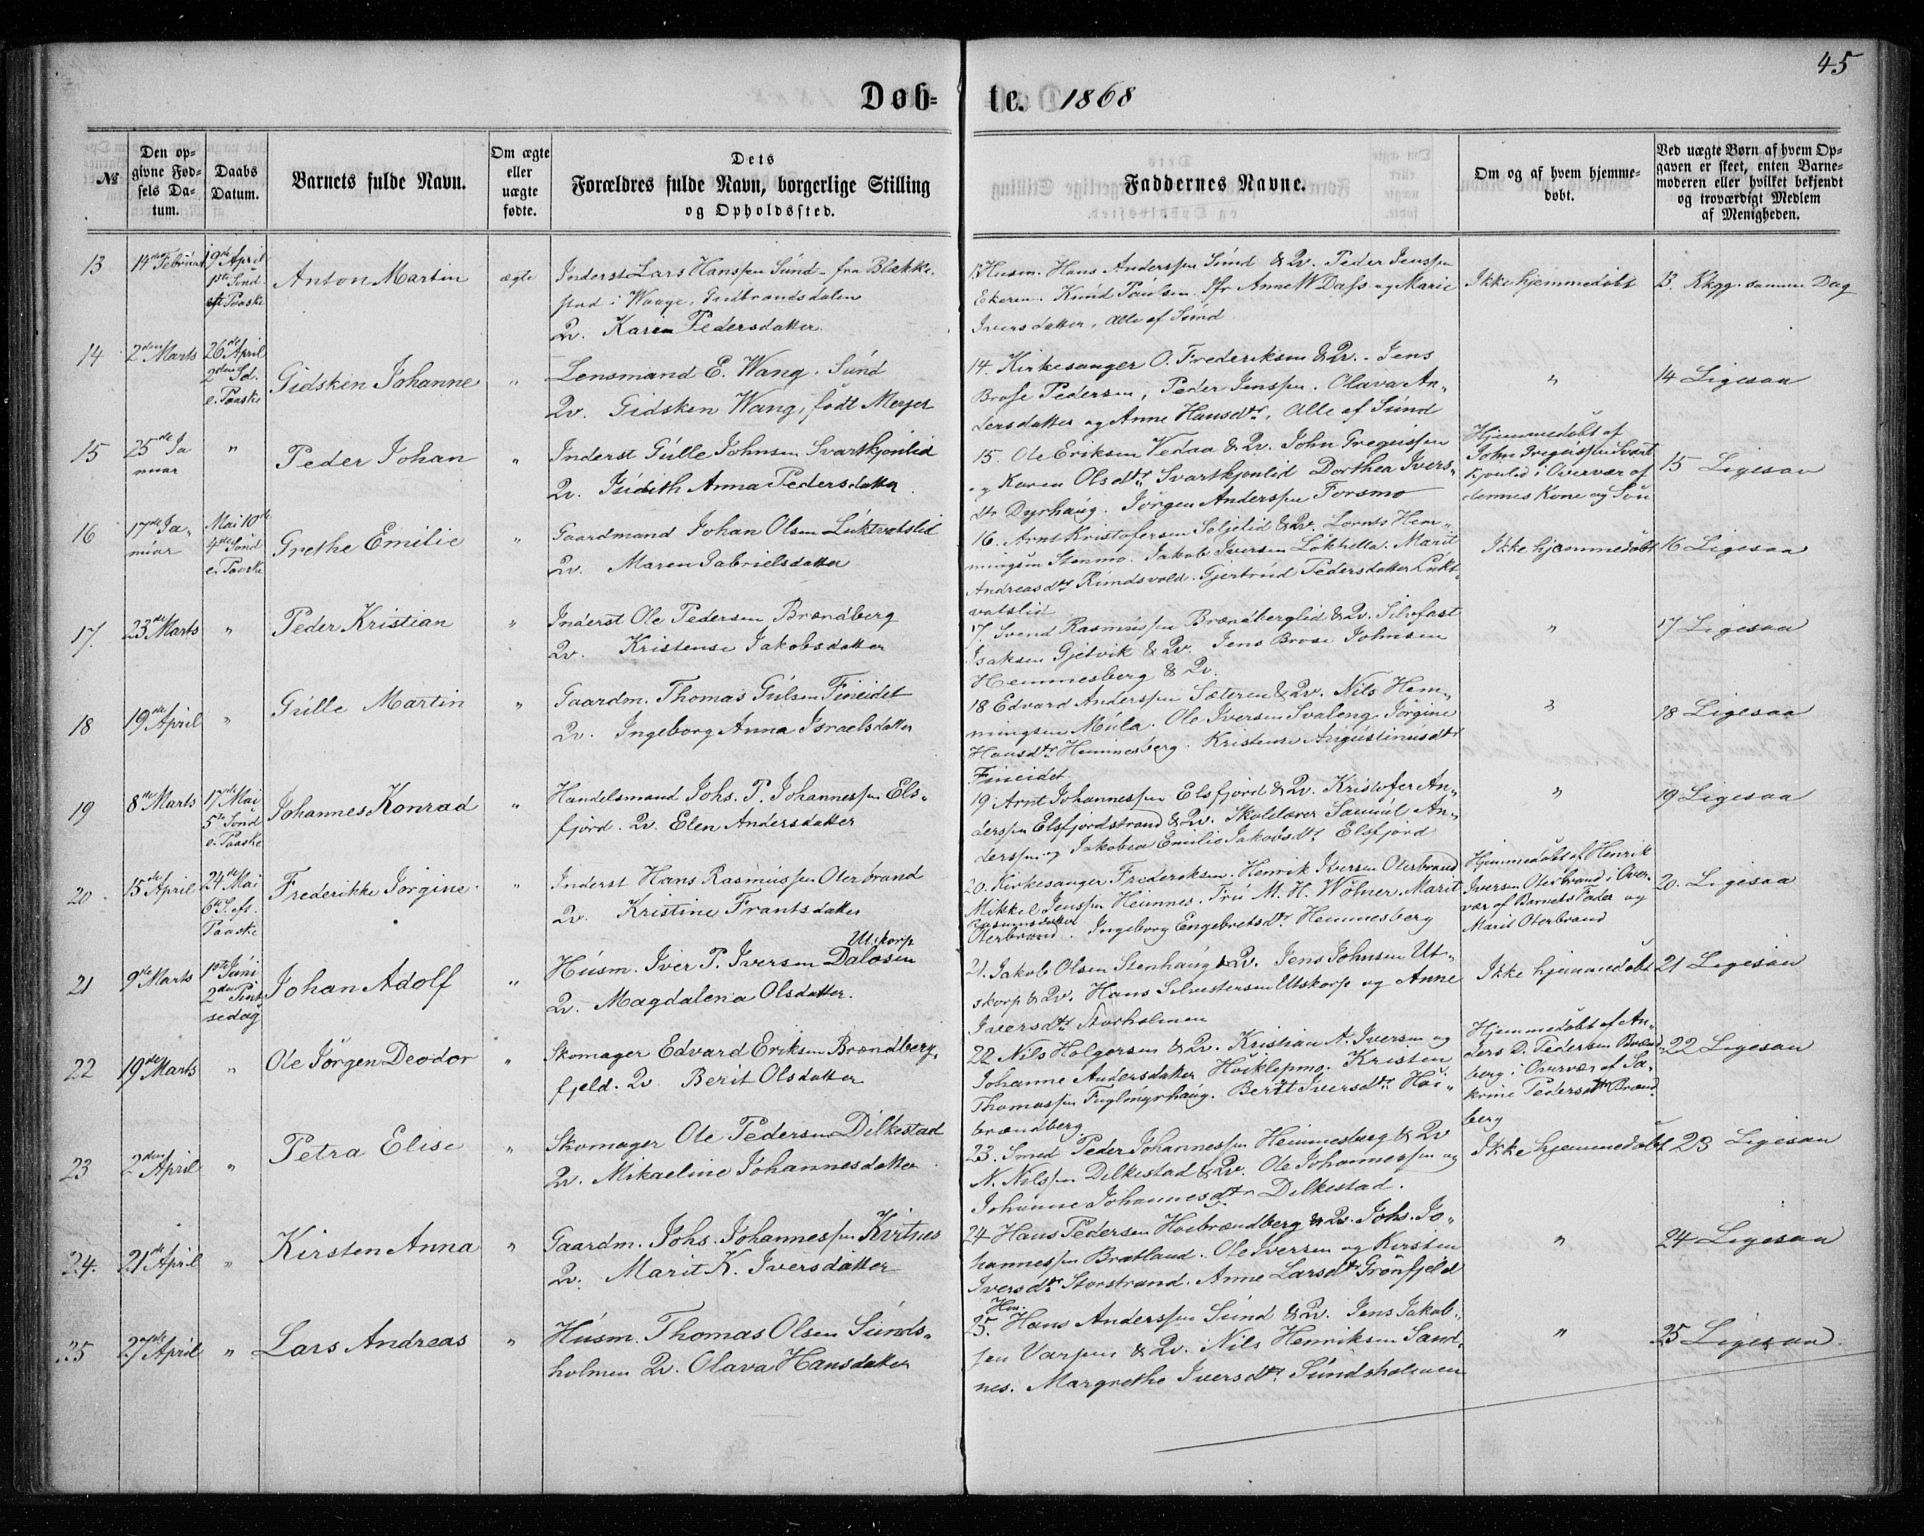 45
Døb= te. 1868
№
Den op=
givne Fød=
sels Da=
tum.
Daabs
Datum.
Barnets fulde Navn.
Om ægte
eller
uægte
fødte.
Dets
Forældres fulde Navn, borgerlige Stilling
og Opholdssted.
Faddernes Navne.
Om og af hvem hjemme=
døbt.
Ved uægte Børn af hvem Op=
gaven er skeet, enten Barne=
moderen eller hvilket bekjendt
og troværdigt Medlem
af Menigheden.
13
14de Februar
19de April
1ste Sönd
eft Paaske
Anton Martin
ægte
Inderst Lars Hanssen Sund - fra Blekke-
stad i Waage, Gudbrandsdalen
Qv. Karen Pedersdatter
13 Husm. Hans Anderssen Sund & Qv. Peder Jenssen
Ekeren. Knud Paulsen. Jfr Anne W Dass og Marie
Iversdatter, alle af Sund
Ikke hjemmedøbt
13. Kkgg. samme Dag
14
2den Marts
26de April
2den Sd.
e. Paaske
Gidsken Johanne
"
Lensmand E. Wang. Sund
Qv. Gidsken Wang, født Meyer
14. Kirkesanger O. Frederiksen & Qv. - Jens
Brose Pedersen, Peder Jenssen. Olava An-
dersdatter og Anne Hansdtr, Alle af Sund
"
14 Ligesaa
15
25de Ja
nuar
"
Peder Johan
"
Inderst Gulle Johnsen Svartkjønlid
Qv. Judith Anna Pedersdatter
15. Ole Eriksen Vedaa & Qv. John Gregussen
og Karen Olsdtr Svartkjønlid Dorthea Ivers-
dtr Dyrhaug. Jørgen Anderssen Forsmo
Hjemmedøbt af
John Gregussen Svart
kjønlid i Overvær af
dennes Kone og Søn
15 Ligesaa
16
17de Ja-
nuar
Mai 10de
4de Sønd
e. Paaske
Grethe Emilie
"
Gaardmand Johan Olsen Luktvatslid
Qv. Maren Gabrielsdatter
16. Arnt Kristofersen Soljelid & Qv. Lornts Hem-
mingsen Stenmo. Jakob Iversen Løkhella. Marit
Andreasdtr Rundsvold. Gjertrud Pedersdatter Lukt-
vatslid
Ikke hjemmedøbt
16 Ligesaa
17.
23de Marts
"
Peder Kristian
"
Inderst Ole Pedersen Brændberg
Qv. Kristense Jakobsdatter
17 Svend Rasmussen Brændberglid & Qv. Silvfast
Isaksen Gjetvik & Qv. Jens Brose Johnsen
Hemmesberg & Qv.
"
17 Ligesaa
18
19de April
"
Gulle Martin
"
Gaardm. Thomas Gulsen Fineidet
Qv. Ingeborg Anna Israelsdatter
18 Edvard Anderssen Sæteren & Qv. Nils Hem-
mingsen Mula. Ole Iversen Svaleng. Jørgine
Hansdtr Hemmesberg. Kristense Augustinusdtr
Fineidet
"
18 Ligesaa
19
8de Marts
17de Mai
5te Sönd
e. Paaske
Johannes Konrad
"
Handelsmand Johs. P. Johannessen Els-
fjord. Qv. Elen Andersdatter
19 Arnt Johannessen Elsfjord & Qv. Kristofer An-
derssen Elsfjordstrand & Qv. Skolelærer Samuel An-
derssen og Jakobea Emilie Jakobsdtr Elsfjord
"
19 Ligesaa
20
15de April
24de Mai
6te S. eft.
Paaske
Frederikke Jørgine
"
Inderst Hans Rasmussen Oterbrand
Qv. Kristine Frantsdatter
20. Kirkesanger Frederiksen. Henrik Iversen Oterbrand
Mikkel Jenssen Hemnes. Fru M. H. Wolner. Marit
Rasmusdatter
Oterbrand. Ingeborg Engebretsdtr Hemmesberg
Hjemmedøbt af Henrik
Iversen Oterbrand i Over-
vær af Barnets Fader og
Marit Oterbrand
20. Ligesaa
21
9de Marts
1ste Juni
2den Pint
sedag
Johan Adolf
"
Utskorp
Husm. Iver P. Iversen Daløsen
Qv. Magdalena Olsdatter.
21. Jakob Olsen Stenhaug & Qv. Jens Johnsen Ut-
skorp & Qv. Hans Silvestersen Utskorp og Anne
Iversdtr Storholmen
Ikke hjemmedøbt
21 Ligesaa
22
19de Marts
"
Ole Jørgen Deodor
"
Skomager Edvard Eriksen Brændberg-
fjeld. Qv. Berit Olsdatter
22 Nils Holgersen & Qv. Kristian A. Iversen og
Johanne Andersdatter Høiklepmo. Kristen
Thomassen Fuglmyrhaug. Berit Iversdtr Høi-
brændberg
Hjemmedøbt af An-
ders D. Pedersen Brænd-
berg i Overvær af Sa-
krine Pedersdtr Brænd
berg
22 Ligesaa
23
2den April
"
Petra Elise
"
Skomager Ole Pedersen Dilkestad
Qv. Mikaeline Johannesdatter
23. Smed Peder Johannessen Hemmesberg & Qv
N. Nilssen Dilkestad & Qv. Ole Johannessen og
Johanne Johannesdtr Dilkestad.
Ikke hjemmedøbt
23 Ligesaa
24.
21de April
"
Kirsten Anna
"
Gaardm. Johs. Johannessen Kvitnes
Qv. Marit K. Iversdatter
24 Hans Pedersen Høibrændberg & Qv. Johs. Jo-
hannessen Bratland. Ole Iversen og Kirsten
Iversdtr Storstrand. Anne Larsdtr Grønfjeld
"
24 Ligesaa
25
27de April
"
Lars Andreas
"
Husm. Thomas Olsen Sunds-
holmen Qv. Olava Hansdatter
Hus.
25. Hans Anderssen Sund & Qv. Jens Jakob-
sen Varpen & Qv. Nils Henriksen Sand-
nes. Margrethe Iversdtr Sundsholmen
"
25 Ligesaa.